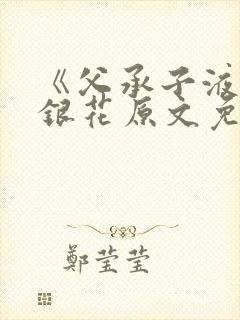 《父承子液
銀花原文免
鄭莹莹